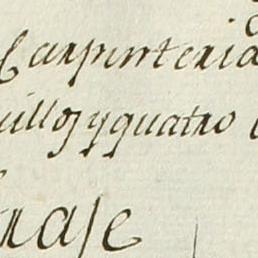 Carpinteria
uillos y quatro
nase